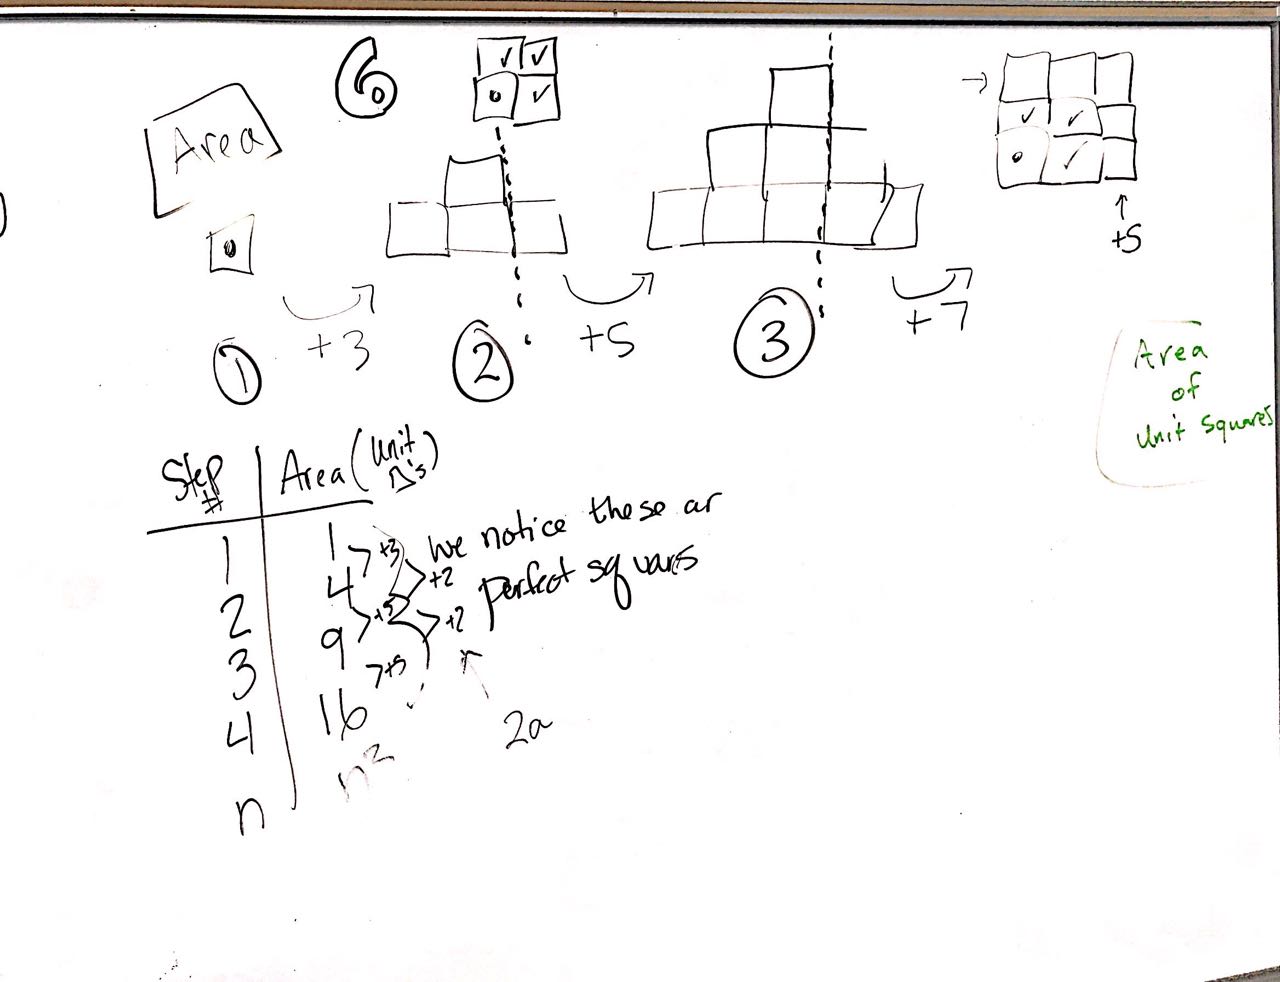 6.
Area
+3
+5
+7
+5
1
2
3
Area
of
Unit Squares
Step
#
Area (Unit
□'s)
1 1
2 4
3 9
4 16
n n²
+3
+5
+2
+2
2a
We notice these ar
perfect squars